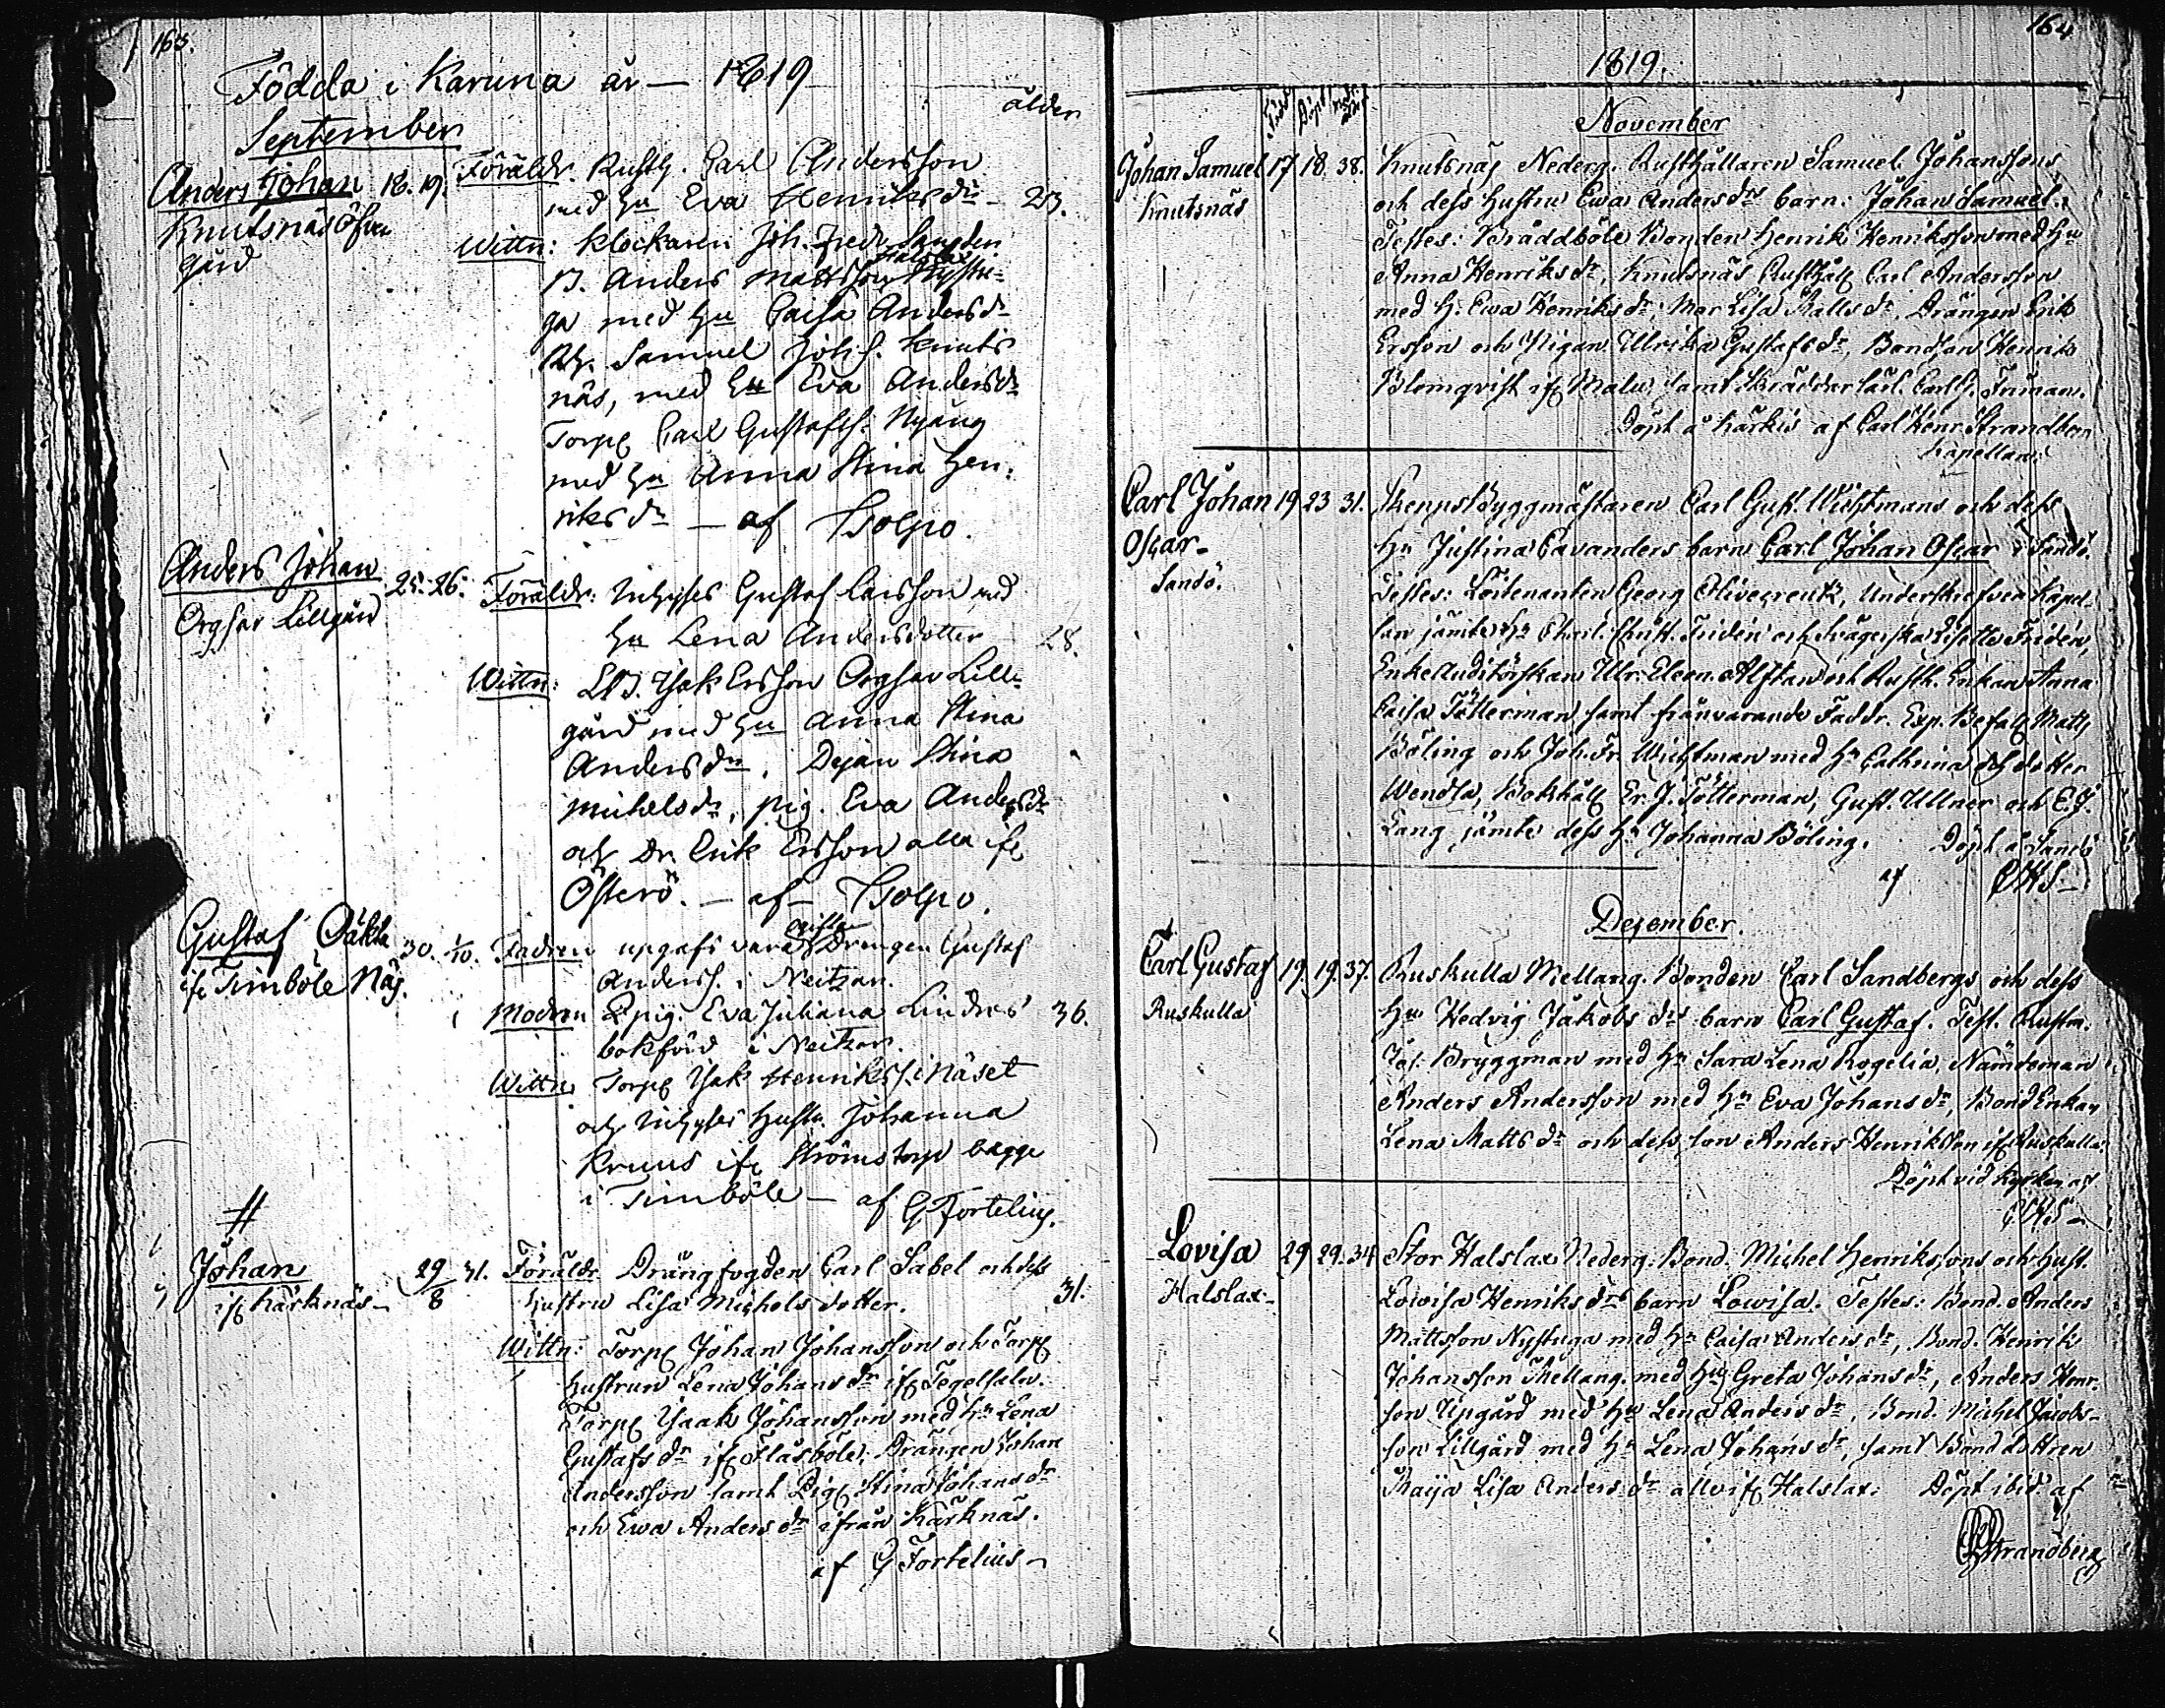 163.
Födda i Karuna år — 1819
ålder
September
Anders Johan 18. 19.
Knutsnäs Öfver
gård
Föräldr. Rusth. Carl Andersson
med Hu Eva Henriksdr - 23.
Wittn: Klockaren Joh. Fredr. Sandén
Halslax
B. Anders Mattsson Nystu-
ga med Hu Caisa Andersdr
Rh. Samuel Johs. Knuts
näs, med Hu Eva Andersdr
Torp Carl Gustafss. Nyäng
med Hu Anna Stina Hen-
riksdr — af
Anders Johan 25. 26.
Lillgård
Föräldr: Inhyses Gustaf Carlsson med
Hu Lena Andersdotter 28.
Wittn: Isak Ersson Lill-
gård med Hu Anna Stina
Andersdr. Dejan Stina
Michelsdr, pig. Eva Andersdr
och Dr. Erik Ersson alla ifr
Österö. — af —
Gustaf Oäkta 30. 1/10.
ifr Timböle Näs.
Fadren upgafs vara Drengen Gustaf
Anderss. i
Modren pig. Eva Juliana 36.
bokförd i
Wittn Torp Isak Henrikss. i Näset
och Inhyses Hustr. Johanna
Kruus ifr Strömstorp begge
i Timböle — af G. Fortelius.
#
Johan 29/8 31.
ifr Kärknäs
Föräldr Drängfogden Carl Sabel och dess
Hustru Lisa Michelsdotter. 31.
Wittn: Torp Johan Johansson och Torp
hustrun Lena Johansdr ifr
Torp Isaak Johansson med Hu Lena
Gustafsdr ifr Flåsböle, Drängen Johan
Andersson samt Pig Stina Johansdr
och Ewa Andersdr ifrån Kärknäs.
af G Fortelius
164
1819.
Född Döpt
November
Johan Samuel 17 18. 38.
Knutsnäs
Knutsnäs Nederg. Rusthållaren Samuel Johanssons
och dess hustru Ewa Andersdrs barn: Johan Samuel.
Testes: Bräddböle Bonden Henrik Henriksson med Hu
Anna Henriksdr, Knutsnäs Rusthåll Carl Andersson
med H. Ewa Henriksdr, Mor Lisa Mattsdr, Drängen Erik
Ersson och Pigan Ulrika Gustafsdr, Bondson Henrik
Blomqvist ifr Malu, samt Skräddar Carl G.
Döpt å Kärkis af Carl Henr. Strandberg
Kapellan.
Carl Johan 19 23 31.
Oscar
Sandö.
Skeppsbyggmästaren Carl Gust. Wichtmans och dess
Hu Justina Cavanders barn Carl Johan Oscar i Sandö.
Testes: Löitenanten Georg Olivecreutz, Underskrefven Kapel-
lan jämte Hu Fridén och Lisette Fridén,
EnkeAuditörskan Ulr. Eleon. Alftan och Rusth. Enkan Anna
Caisa Tötterman samt frånvarande Faddr. Exp. Befall Matts
Böling och Joh. Fr. Wichtman med Hu Cathrina och dotter
Wendla, Bokhåll Er. J. Tötterman, Gust. Ullner och E. J.
Lang jämte dess Hu Johanna Böling. Döpt å Sandö
af CHS
December.
Carl Gustaf 19. 19. 37.
Ruskulla
Ruskulla Mellang. Bonden Carl Sandbergs och dess
Hu Hedvig Jakobsdrs barn Carl Gustaf. Test. Rustm.
Bryggman med Hu Sara Lena Rogelia, Nämdeman
Anders Andersson med Hu Eva Johansdr, BondEnkan
Lena Mattsdr och dess son Anders Henriksson ifr Ruskulla.
Döpt vid Kyrkan af
CHS
Lovisa 29 29. 34
Halslax
Stor Halslax Nederg. Bond. Michel Henrikssons och hust.
Lowisa Henriksdrs barn Lowisa. Testes: Bond. Anders
Mattsson Nystuga med Hu Caisa Andersdr, Bond. Henrik
Johansson Mellang. med Hu Greta Johansdr, Anders Henr-
son Upgård med Hu Lena Andersdr, Bond. Michel Jacobs-
son Lillgård med Hu Lena Johansdr, samt Bonddottren
Maija Lisa Andersdr alla ifr Halslax. Döpt ibid. af
CHStrandberg